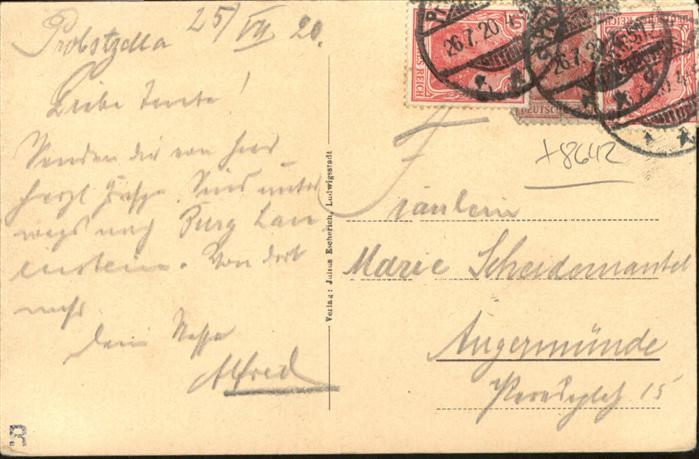 Probstzella 25/VII 20.
Liebe Tante!
Senden dir von hier
herzl Grüße. Sind unter
wegs nach Burg Lau
enstein. Von dort
mehr
Dein Neffe
Alfred
Verlag: Julius Escherich, Ludwigsstadt
26.7.20
26.7.20
DEUTSCHES REICH
+8642
Fräulein
Marie Scheidemantel
Angermünde
15
R